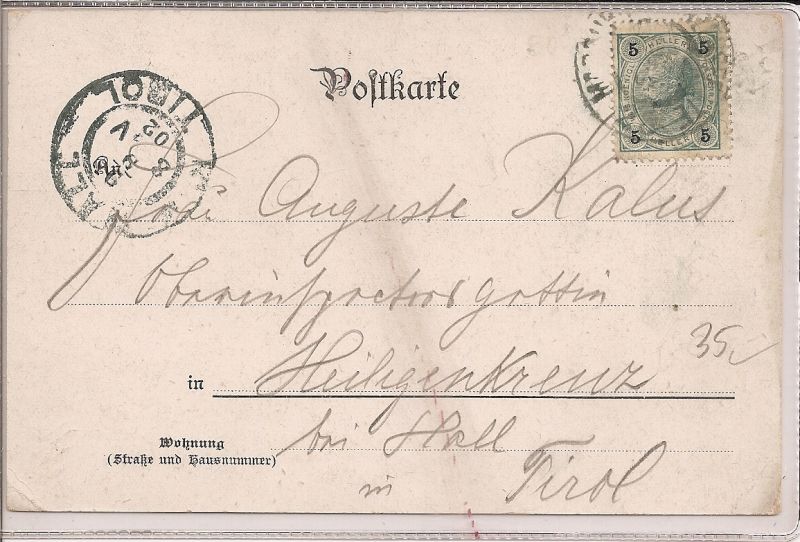 Postkarte
5 HELLER 5
5 HELLER 5
TIROL
HALL
An
Frau Auguste Kalus
Oberinspectorsgattin
35.-
in Heiligenkreuz
Wohnung
(Straße und Hausnummer)
bei Hall
in Tirol